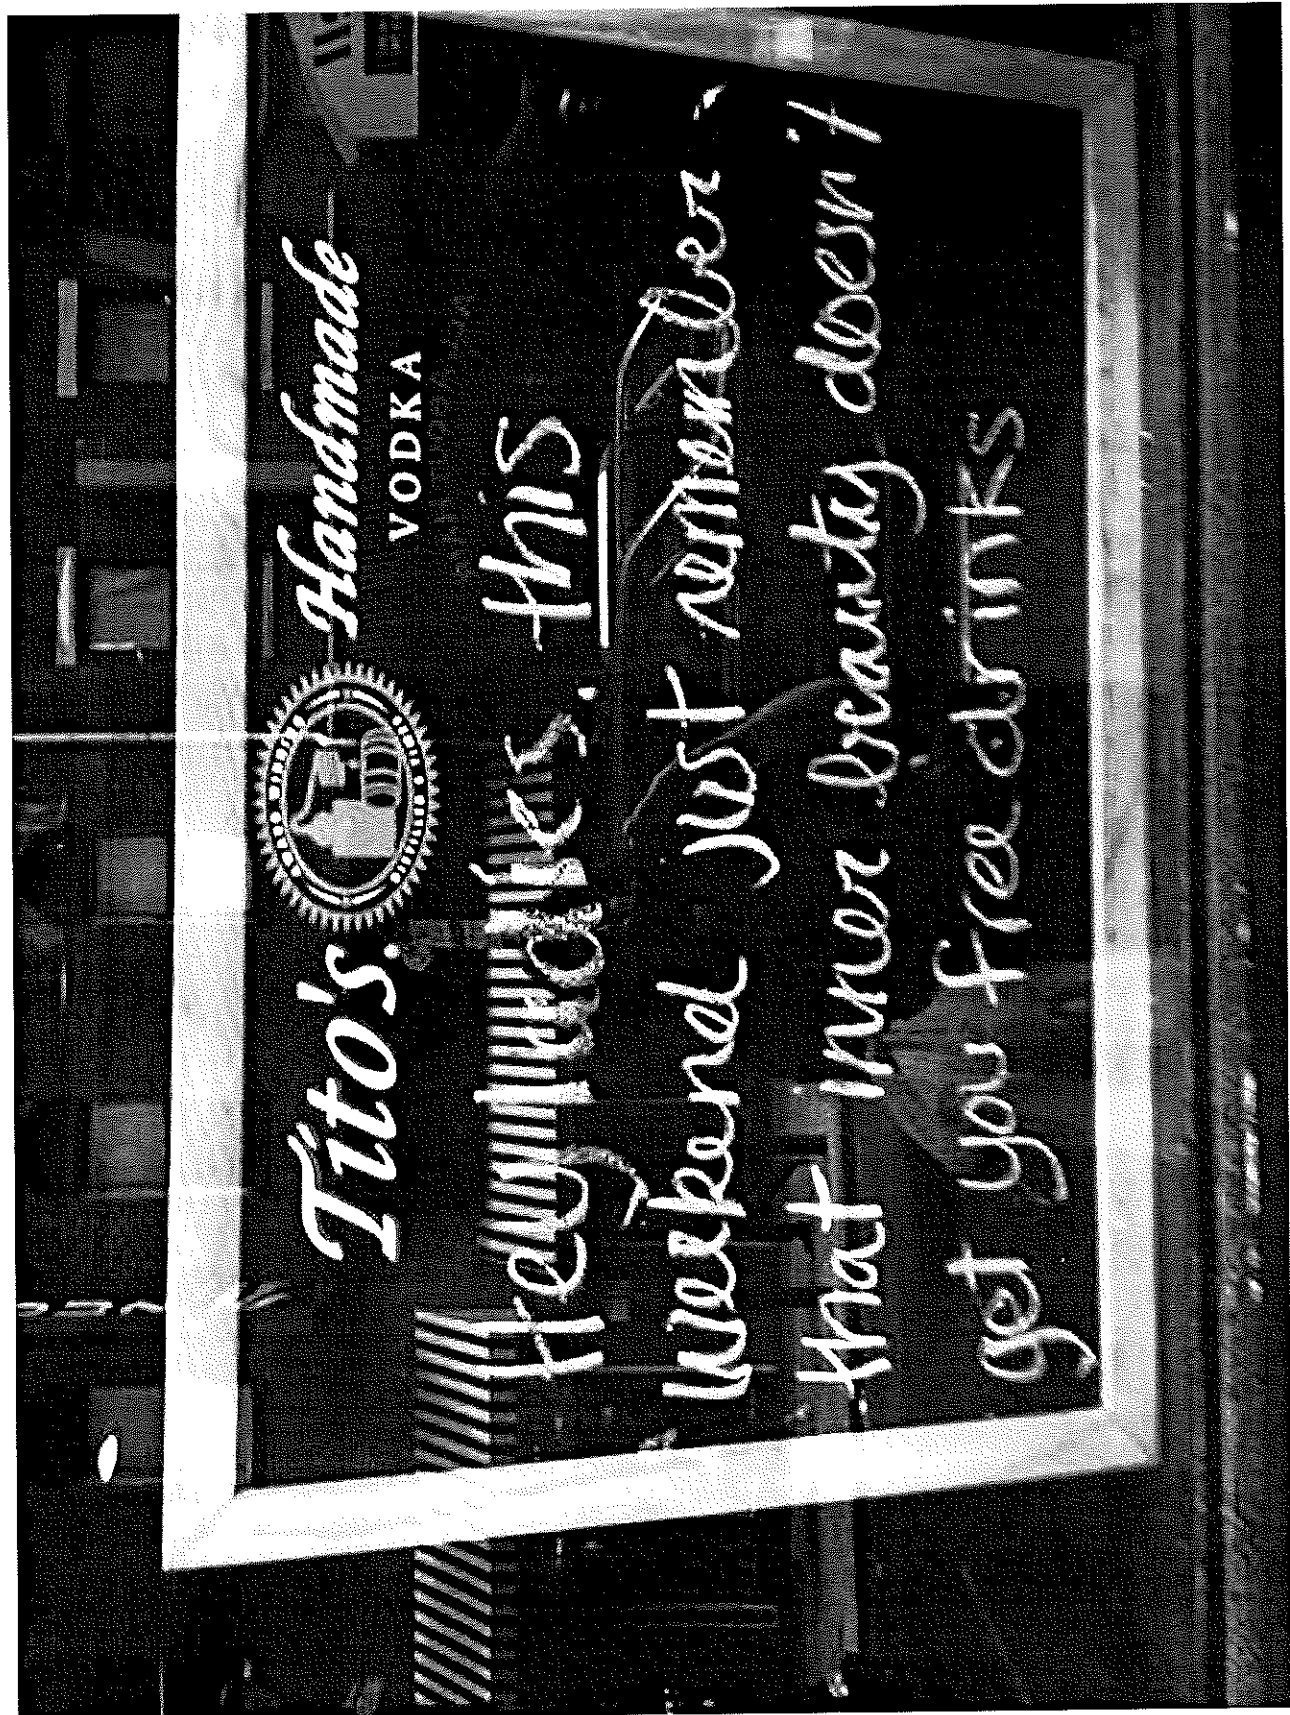 Tito's. Handmade
VODKA
Hey ladies. this
weekend just remember
that inner beauty doesn't
get you free drinks